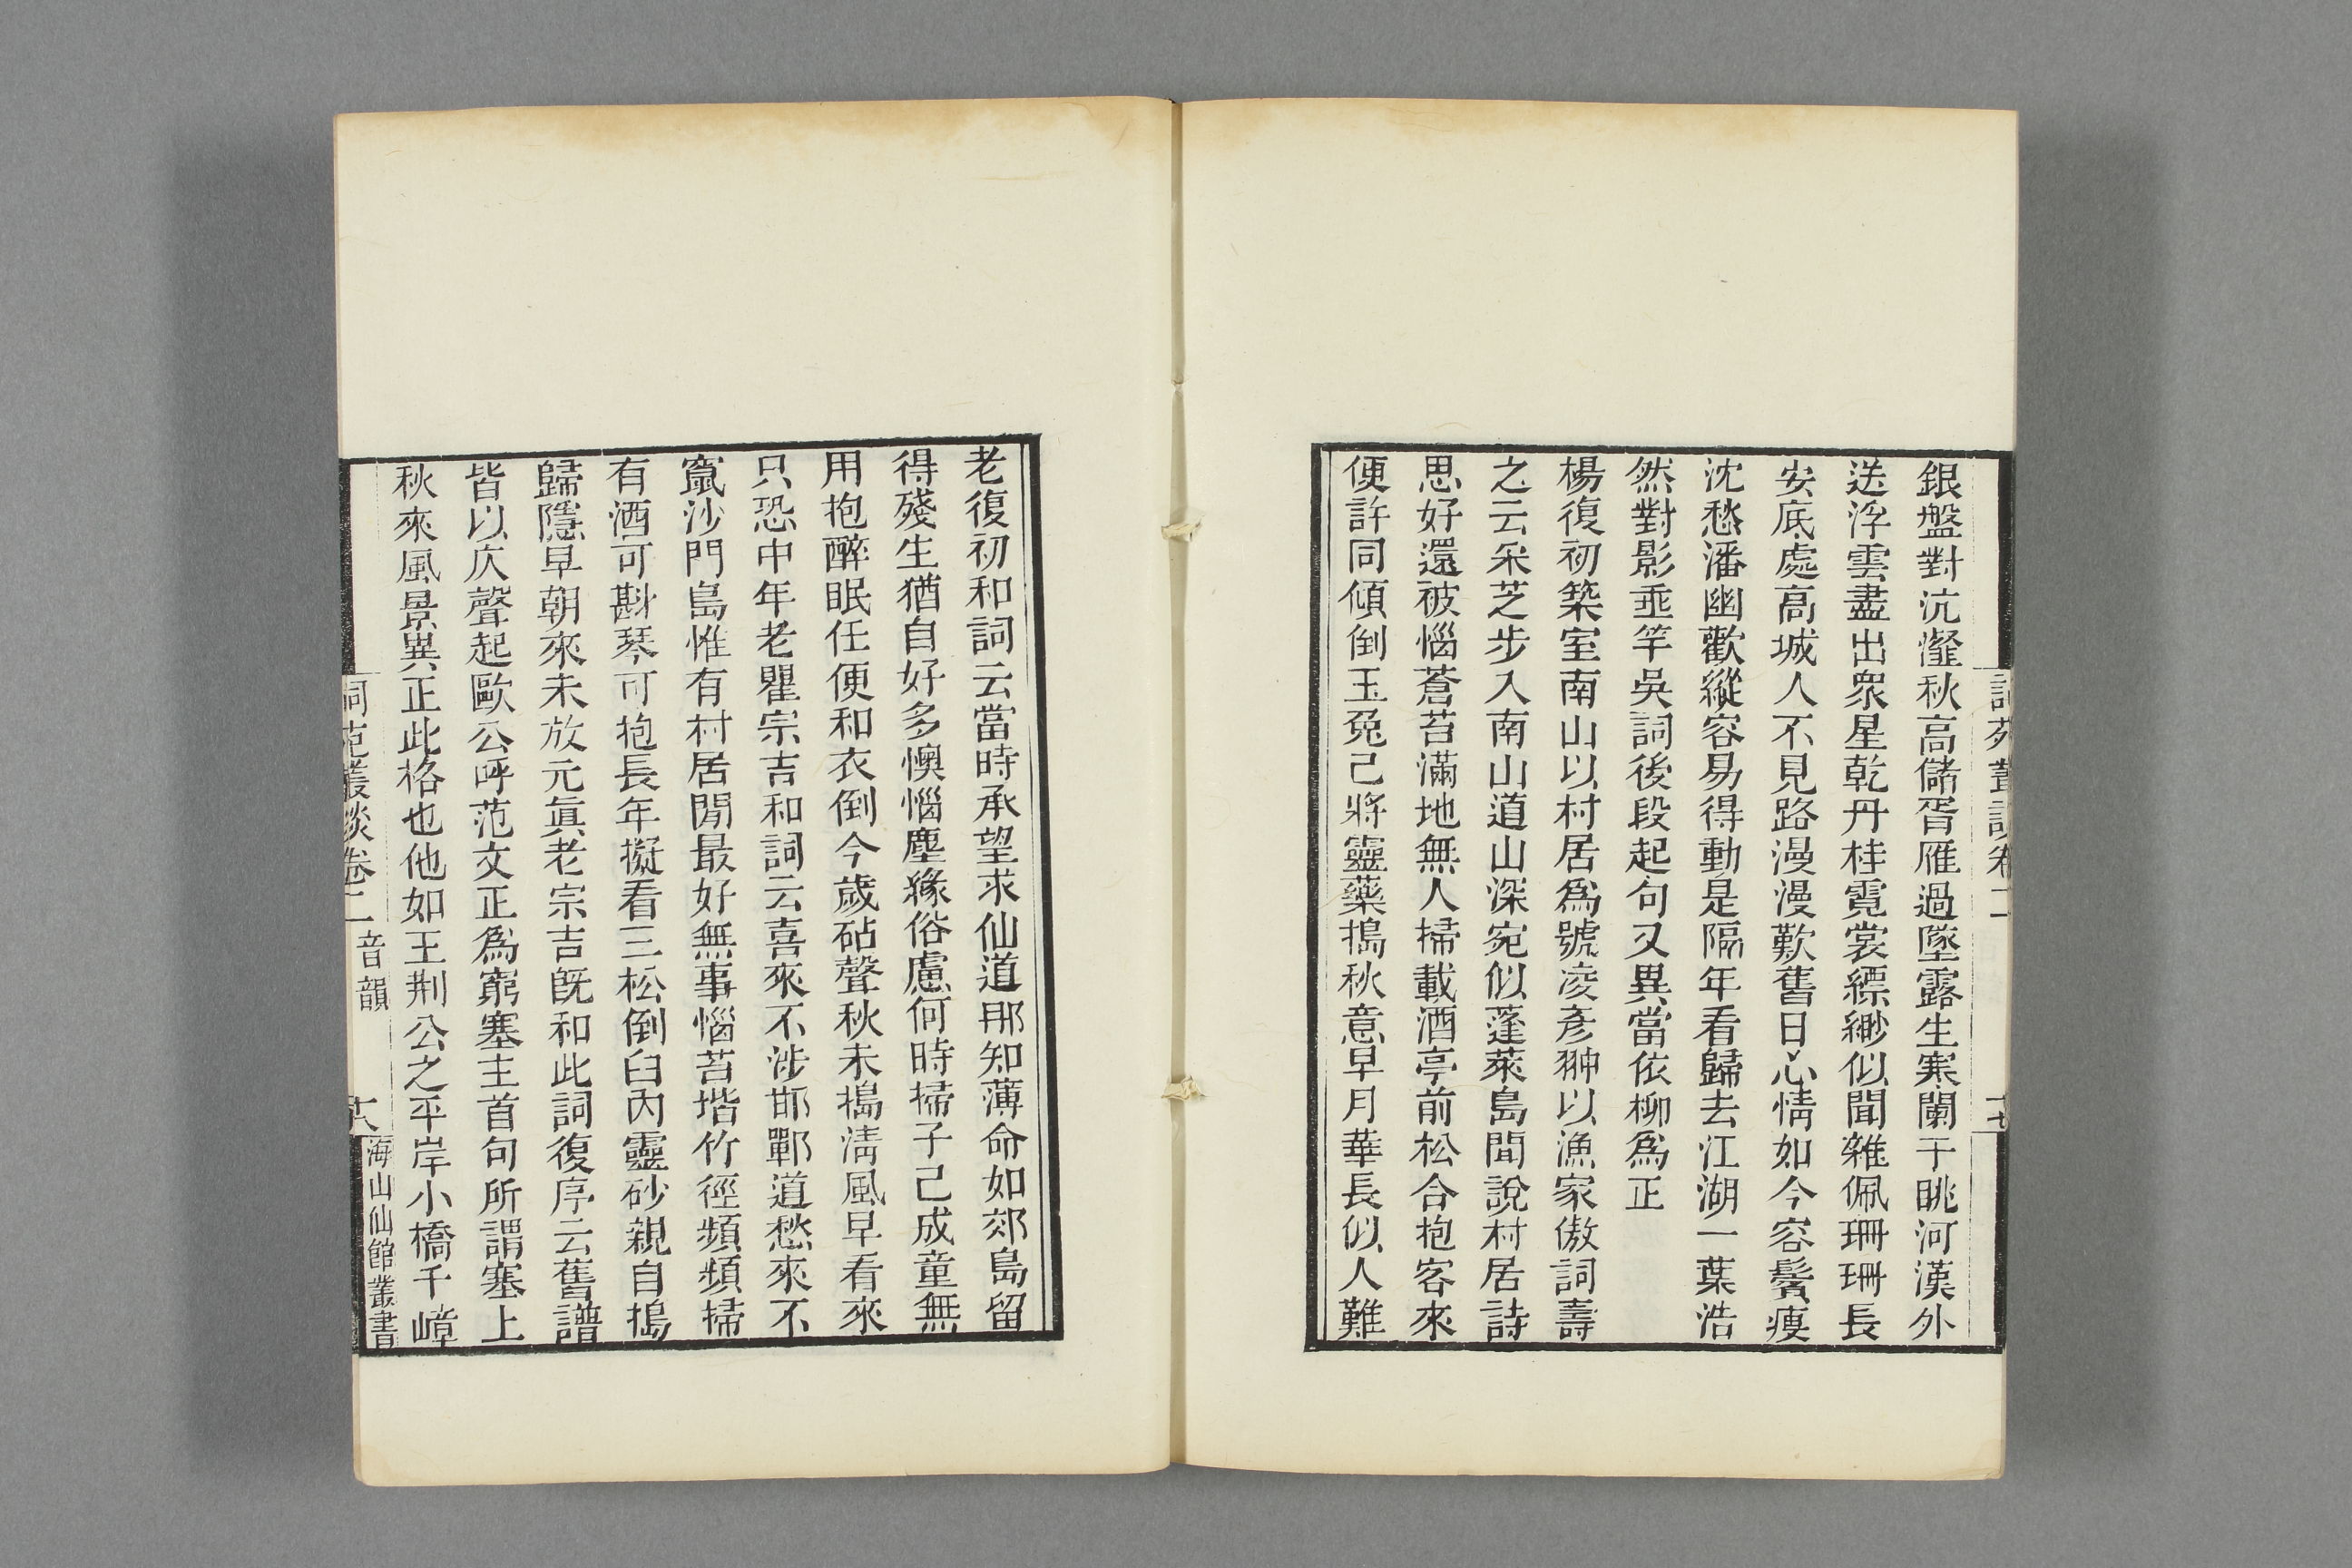 銀盤對沆瀣秋高儲胥雁過墜露生寒闌干眺河漢外
送浮雲盡出衆星乾丹桂霓裳縹緲似聞雜佩珊珊長
安底處高城人不見路漫漫歎舊日心情如今容鬢瘦
沈愁潘幽歡縱容易得動是隔年看歸去江湖一葉浩
然對影垂竿吳詞後段起句又異當依柳爲正
楊復初築室南山以村居爲號凌彥翀以漁家傲詞壽
之云采芝步入南山道山深宛似蓬萊島聞說村居詩
思好還被惱蒼苔滿地無人掃載酒亭前松合抱客來
便許同傾倒玉兔己將靈藥搗秋意早月華長似人難
老復初和詞云當時承望求仙道那知薄命如郊島留
得殘生猶自好多懊惱塵緣俗慮何時掃子己成童無
用抱醉眠任便和衣倒今歲砧聲秋未搗淸風早看來
只恐中年老瞿宗吉和詞云喜來不涉邯鄲道愁來不
竄沙門島惟有村居閒最好無事惱苔堦竹徑頻頻掃
有酒可斟琴可抱長年擬看三松倒臼內靈砂親自搗
歸隱早朝來未放元眞老宗吉旣和此詞復序云舊譜
皆以仄聲起歐公呼范文正爲窮塞主首句所謂塞上
秋來風景異正此格也他如王荆公之平岸小橋千嶂
詞苑叢談卷二 音韻 十八 海山仙館叢書